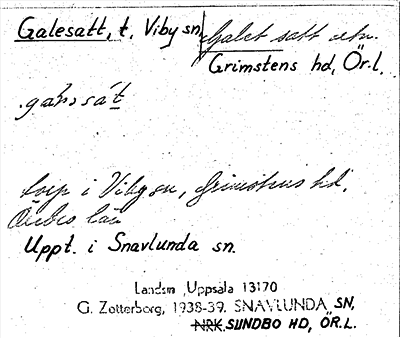 Galesätt, t. Viby sn
Galet sätt
Grimstens hd, Ör.l.
torp i Viby sn, Grimstens hd.
Örebro län
Uppt. i Snavlunda sn.
Landsm. Uppsala 13170
G. Zetterborg, 1938-39. SNAVLUNDA SN,
NRK. SUNDBO HD, ÖR.L.